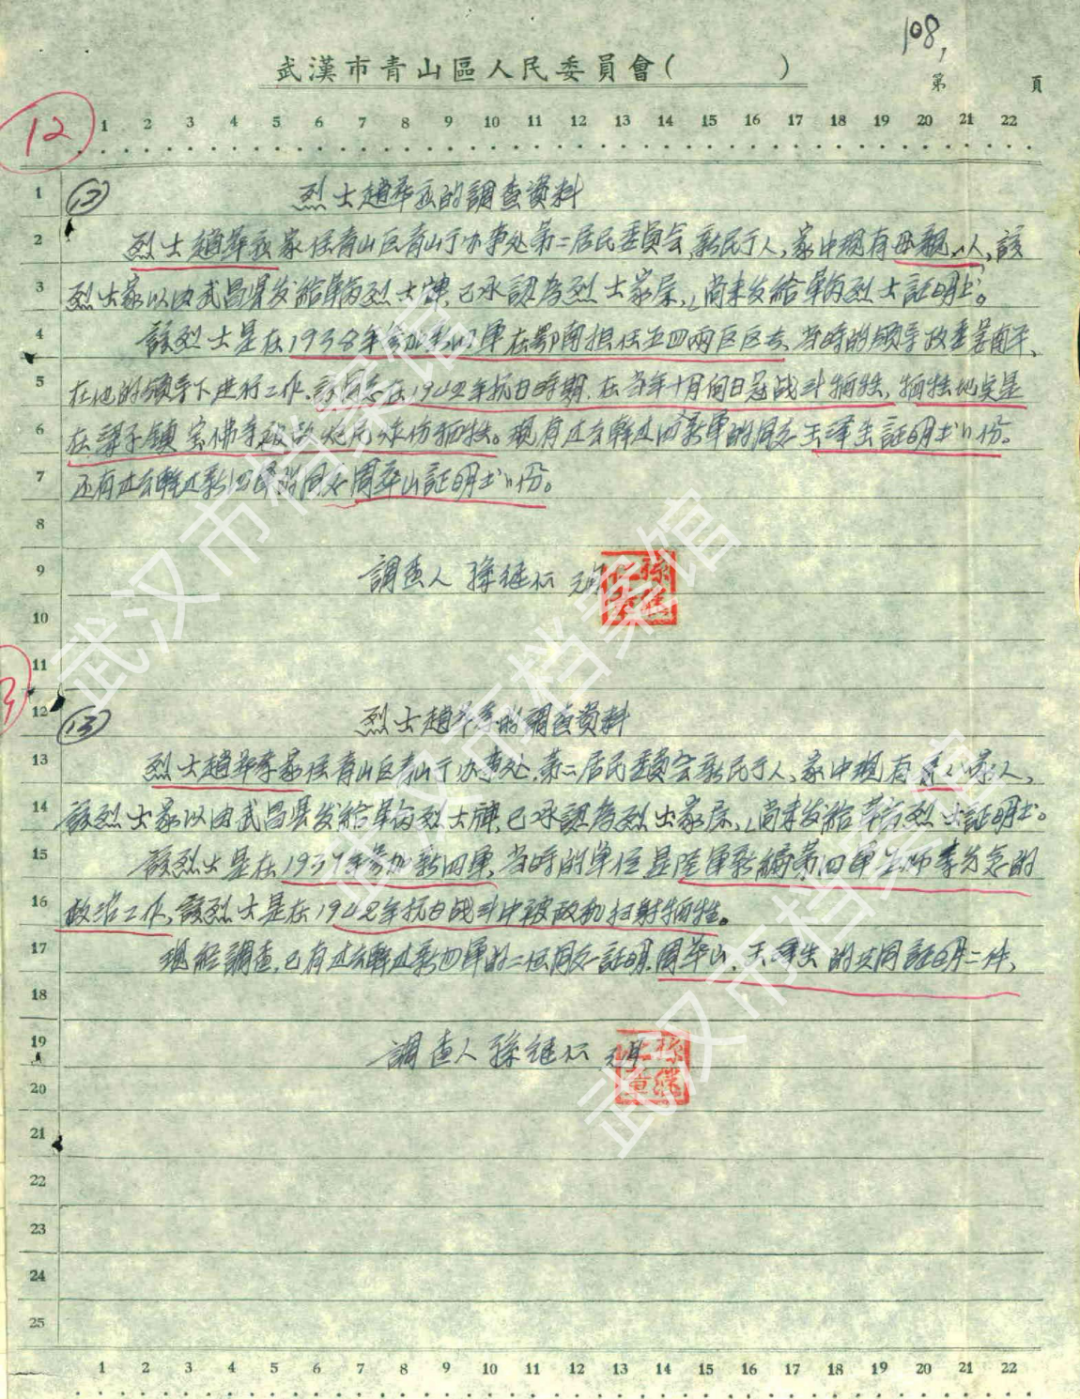 108,
武漢市青山區人民委員會(          )
第 頁
1 2 3 4 5 6 7 8 9 10 11 12 13 14 15 16 17 18 19 20 21 22
12
1 (12) 烈士趙華的調查資料
2 烈士趙華家住青山区青山于办事处第二居民委員会新民于人,家中現有母親一人,該
3 烈士家以由武昌県发給革命烈士牌,已承認為烈士家属,尚未发給革命烈士証明书。
4 該烈士是在1938年参加新四軍在鄂南担任五四兩区区長,当時的領导政委是
5 在他的領导下进行工作,該同志在1942年抗日時期,在当年十月间日寇战斗牺牲,牺牲地点是
6 在梁子鎮 牺牲。現有过去幹过新四軍的同志王澤生証明书一份。
7 还有过去幹过新四軍的同志周华山証明书一份。
8
9 調查人 孫継仁
10
11
12 (13) 烈士趙華的調查資料
13 烈士趙華家住青山区青山于办事处,第二居民委員会新民于人,家中現有人,
14 該烈士家以由武昌県发給革命烈士牌,已承認為烈士家属,尚未发給革命烈士証明书。
15 該烈士是在1937年参加新四軍,当時的单位是陸軍新編第四軍五师李先念的
16 政治工作,該烈士是在1942年抗日战斗中被敌机扫射牺牲。
17 現経調查,已有过去幹过新四軍的二位同志証明,周华山、王澤生的共同証明二件,
18
19 調查人 孫継仁
20
21
22
23
24
25
1 2 3 4 5 6 7 8 9 10 11 12 13 14 15 16 17 18 19 20 21 22
武汉市档案馆
武汉市档案馆
武汉市档案馆